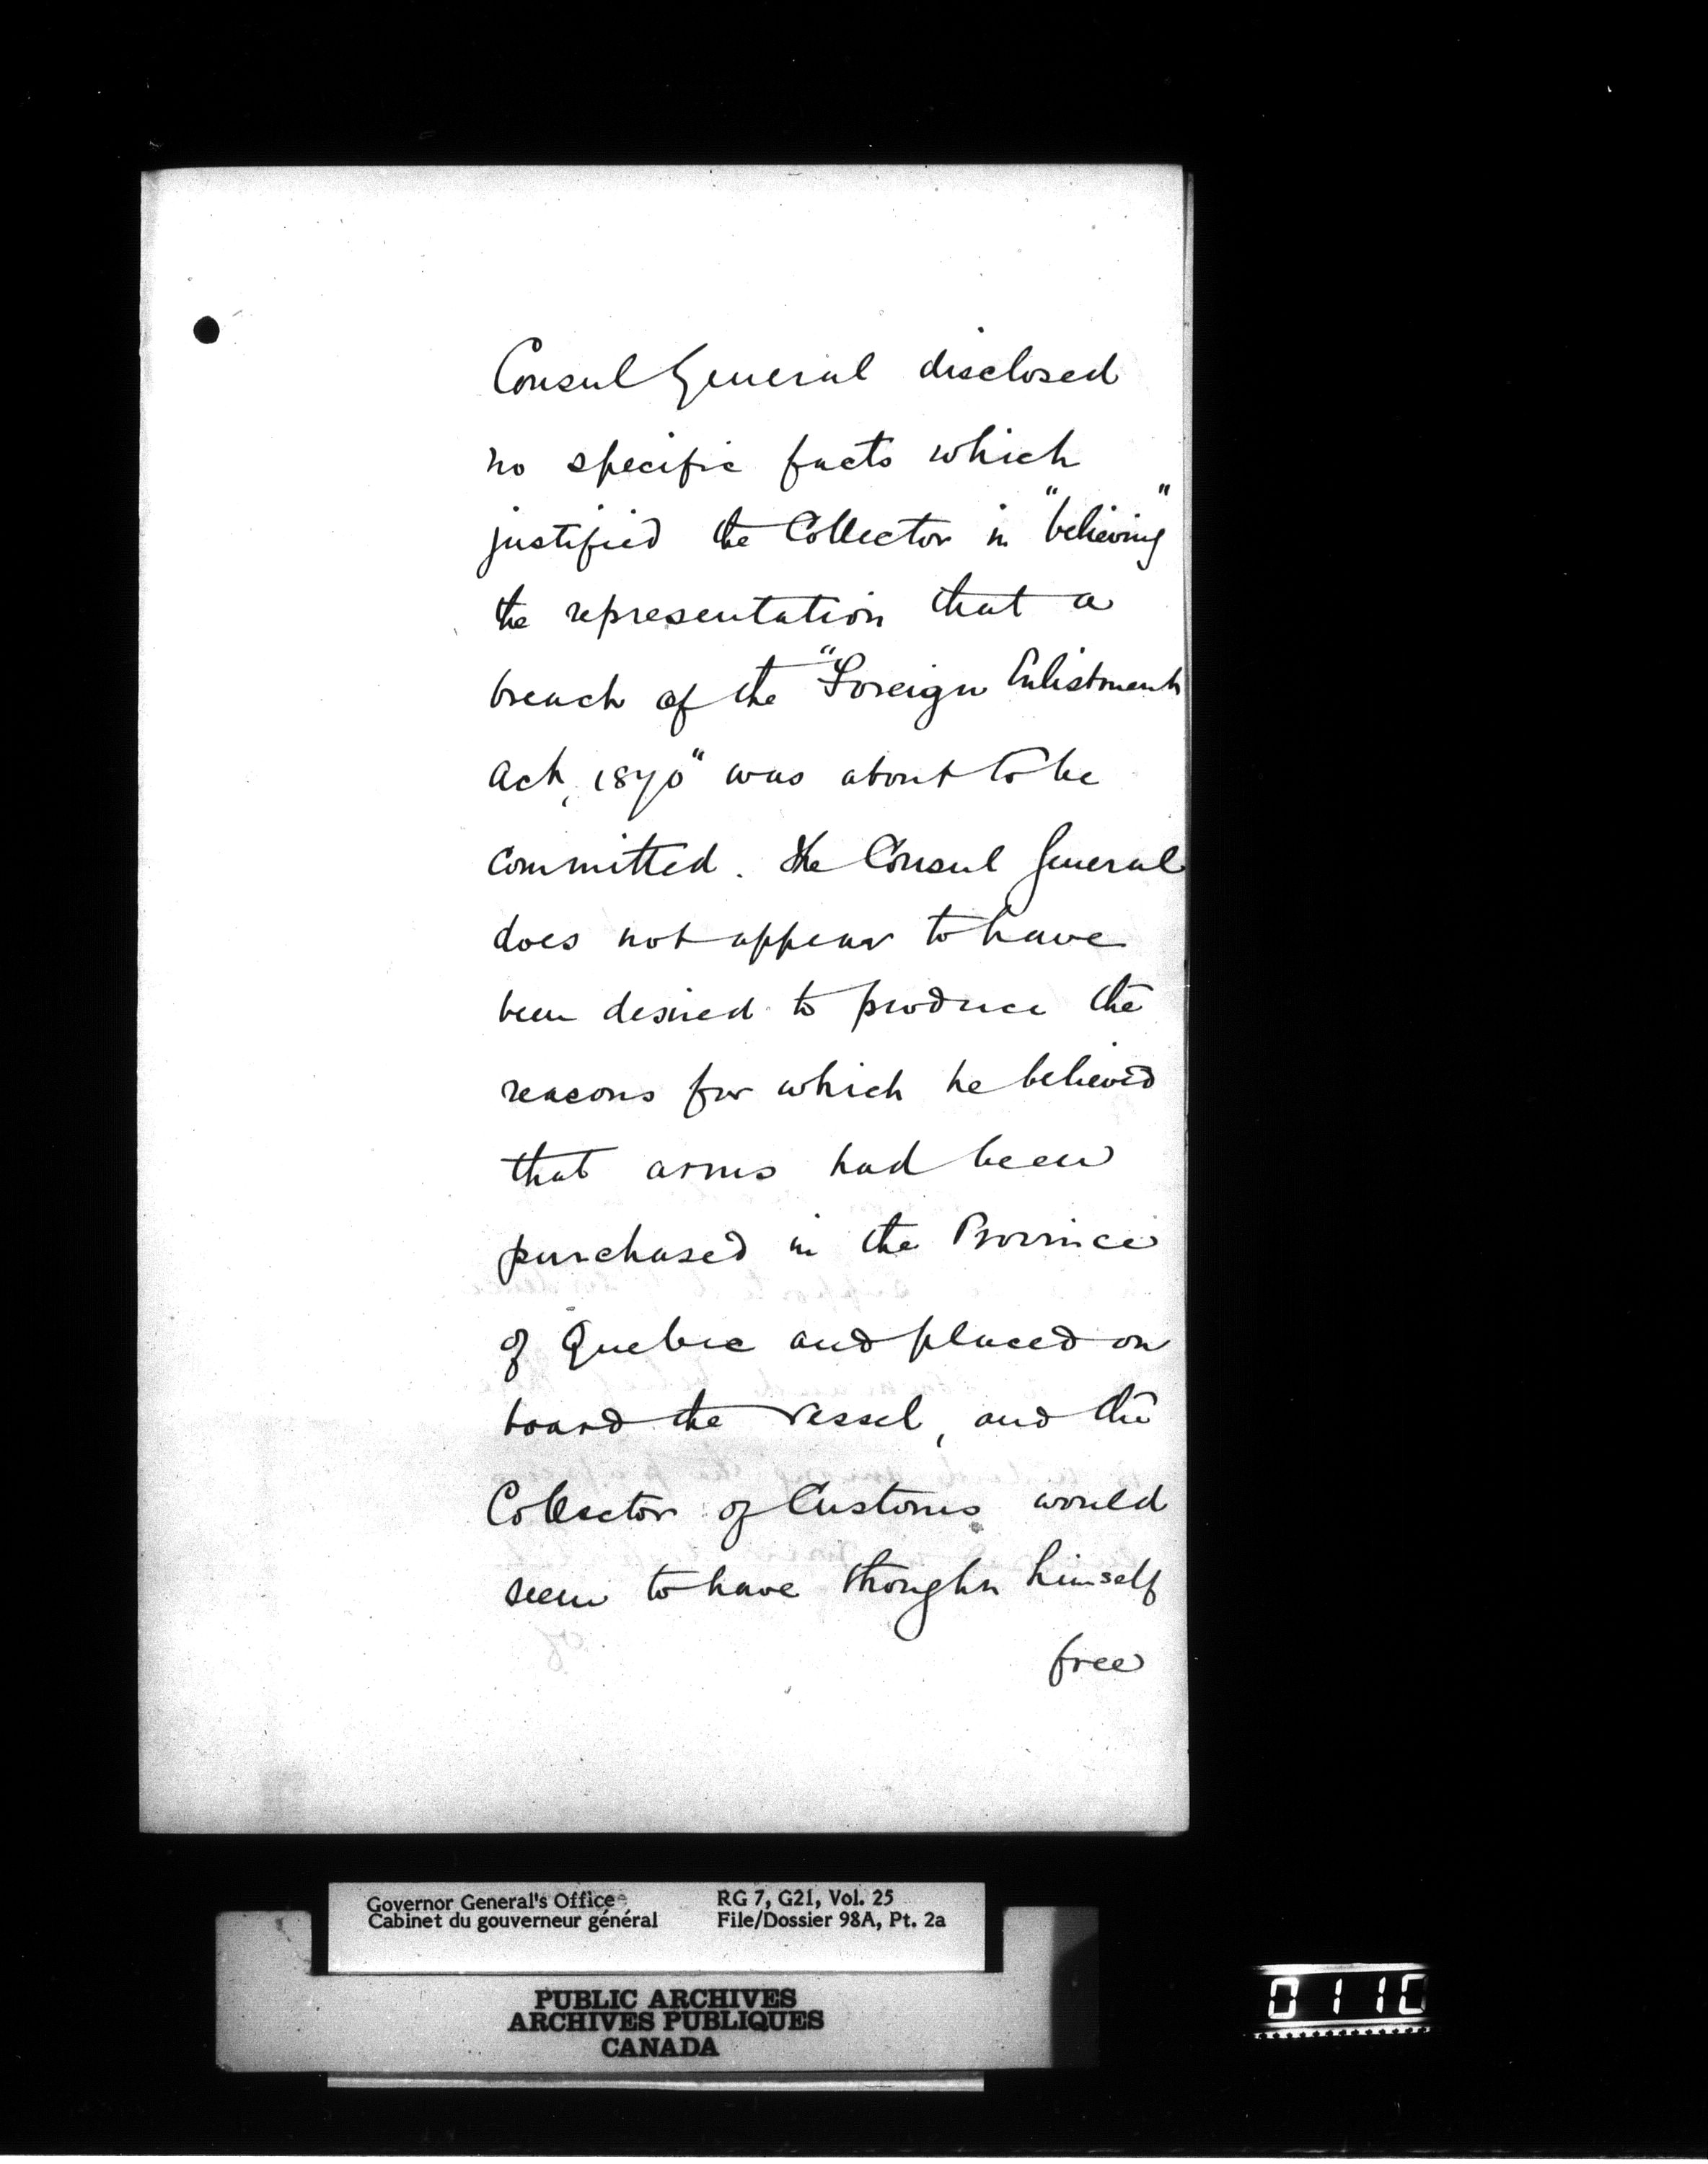 Consul General disclosed
no specific facts which
justified the Collector in "believing"
the representation that a
breach of the "Foreign Enlistment
Act, 1870" was about to be
committed. The Consul General
does not appear to have
been desired to produce the
reasons for which he believed
that arms had been
purchased in the Province
of Quebec and placed on
board the vessel, and the
Collector of Customs would
seem to have thought himself
free
Governor General's Office RG 7, G21, Vol. 25
Cabinet du gouverneur général File/Dossier 98A, Pt. 2a
PUBLIC ARCHIVES
ARCHIVES PUBLIQUES
CANADA
0110